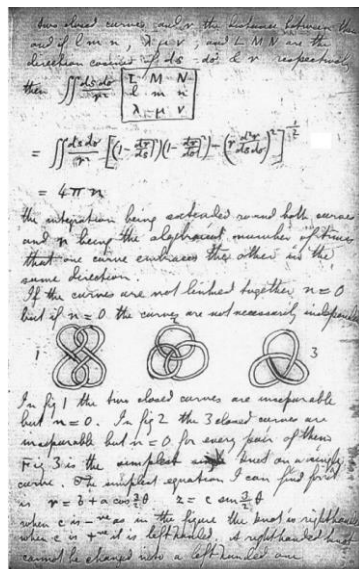 two closed curves and r the distance between them
and if l m n, λ μ ν, and L M N are the
direction cosines of ds dσ & r respectively
then ∬ ds dσ / r² | L M N
l m n
λ μ ν |
= ∬ ds dσ / r² [ (1 - dr/ds²)(1 - dr/dσ²) - (r d²r/dsdσ)² ]^½
= 4πn
the integration being extended round both curves
and n being the algebraical number of times
that one curve embraces the other in the
same direction.
If the curves are not linked together n=0
but if n=0 the curves are not necessarily independent
1 2 3
In fig 1 the two closed curves are inseparable
but n=0. In fig 2 the 3 closed curves are
inseparable but n=0 for every pair of them
Fig 3 is the simplest knot on a single
curve. The simplest equation I can find for it
is r = b + a cos 3/2 θ z = c sin 3/2 θ
when c is -ve as in the figure the knot is right handed
when c is +ve it is left handed. A right handed knot
cannot be changed into a left handed one